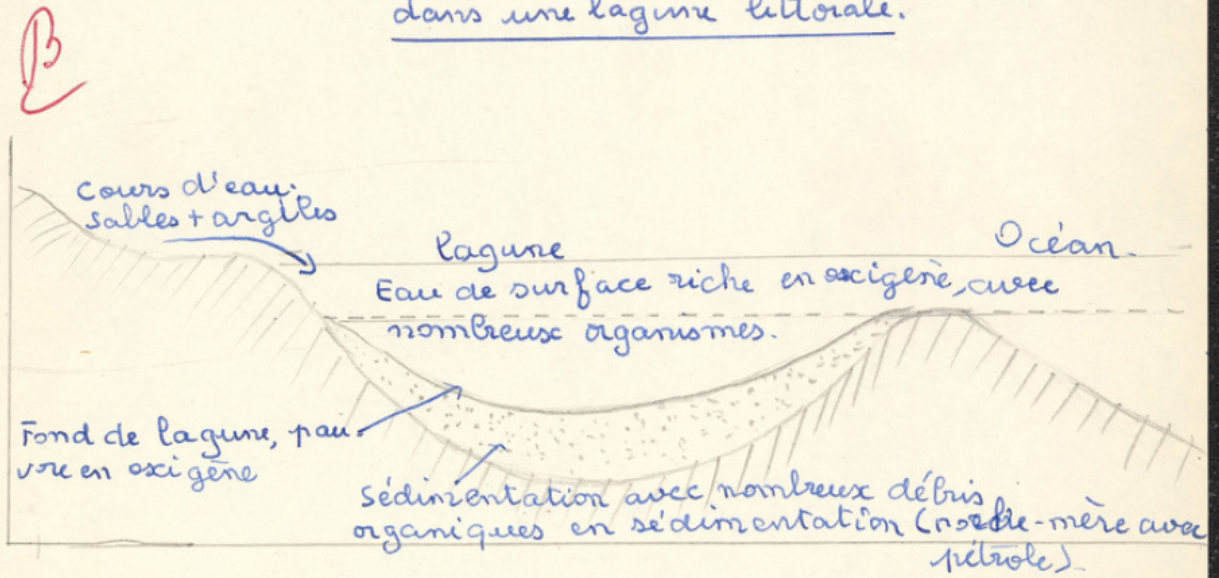 dans une lagune littorale.
B
Cours d'eau:
Sables + argiles
lagune
Océan.
Eau de surface riche en oxigène, avec
nombreux organismes.
Fond de lagune, pau-
vre en oxigène
Sédimentation avec nombreux débris
organiques en sédimentation (roche-mère avec
pétrole).